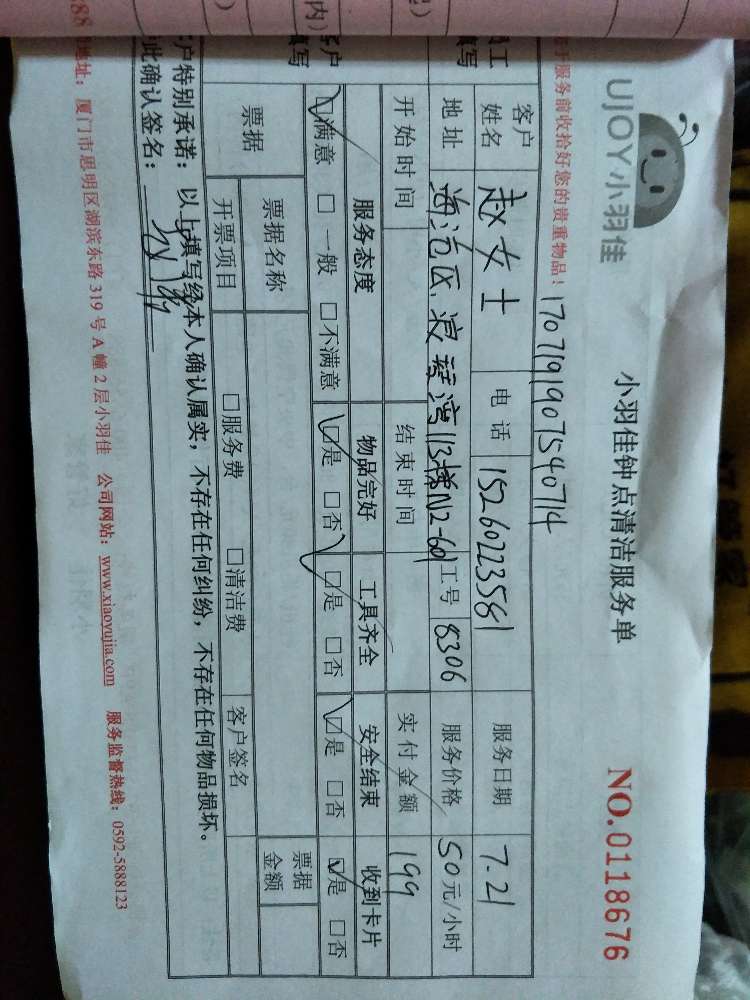 UJOY小羽佳
小羽佳钟点清洁服务单
NO.0118676
于服务前收拾好您的贵重物品!
17071919075540714
客户姓名 赵女士 电话 15260223581 服务日期 7.21
地址 海沧区 浪琴湾113幢N12-601 工号 8306 服务价格 50元/小时
开始时间 结束时间 实付金额 199
服务态度 物品完好 工具齐全 安全结束 收到卡片
☑满意 □一般 □不满意 ☑是 □否 ☑是 □否 ☑是 □否 ☑是 □否
票据 票据名称 票据金额
开票项目 □服务费 □清洁费 客户签名
户特别承诺:以上填写经本人确认属实,不存在任何纠纷,不存在任何物品损坏。
此确认签名:
地址:厦门市思明区湖滨东路319号A幢2层小羽佳 公司网站:www.xiaoyujia.com 服务监督热线:0592-5888123